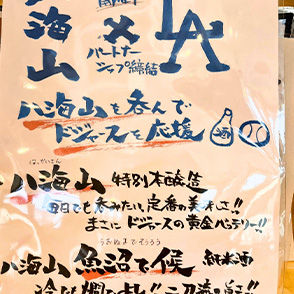 八海山
×
LA
パートナー
シップ締結
八海山を呑んで
ドジャースを応援
酒
はっかいさん
八海山 特別本醸造
毎日でも呑みたい、定番の美味しさ!!
まさにドジャースの黄金バッテリー!!
うおぬまでそうろう
八海山 魚沼で候 純米酒